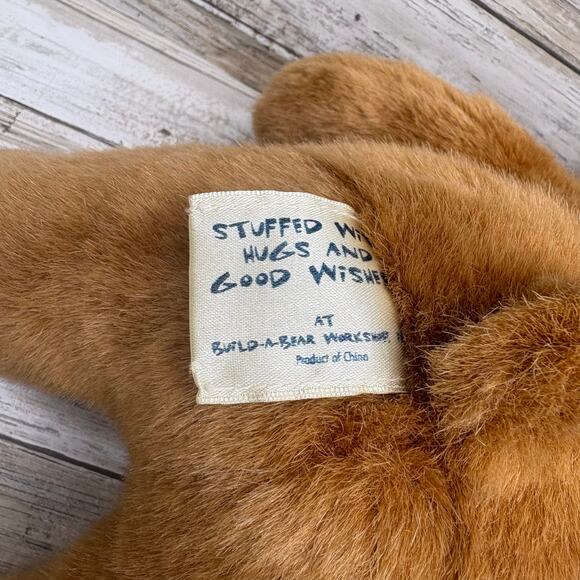 STUFFED WI
HUGS AND
GOOD WISHE
AT
BUILD-A-BEAR WORKSHOP,
Product of China